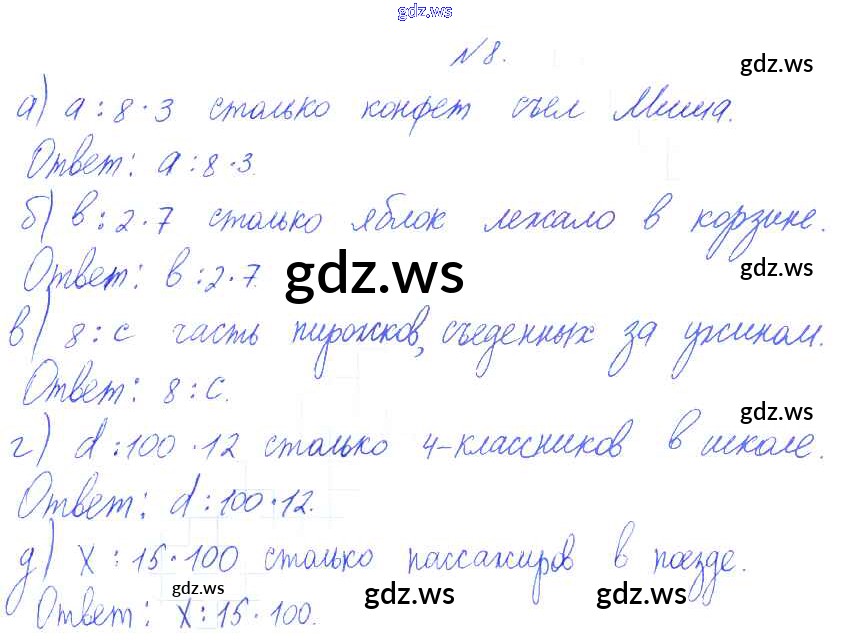 gdz.ws
№ 8.
gdz.ws
а) а : 8 · 3 столько конфет съел Миша.
Ответ: а : 8 · 3.
б) в : 2 · 7 столько яблок лежало в корзине.
Ответ: в : 2 · 7. gdz.ws gdz.ws
в) 8 : с часть пирожков, съеденных за ужином.
Ответ: 8 : с.
gdz.ws
г) d : 100 · 12 столько 4-классников в школе.
Ответ: d : 100 · 12.
д) х : 15 · 100 столько пассажиров в поезде.
gdz.ws gdz.ws gdz.ws
Ответ: х : 15 · 100.